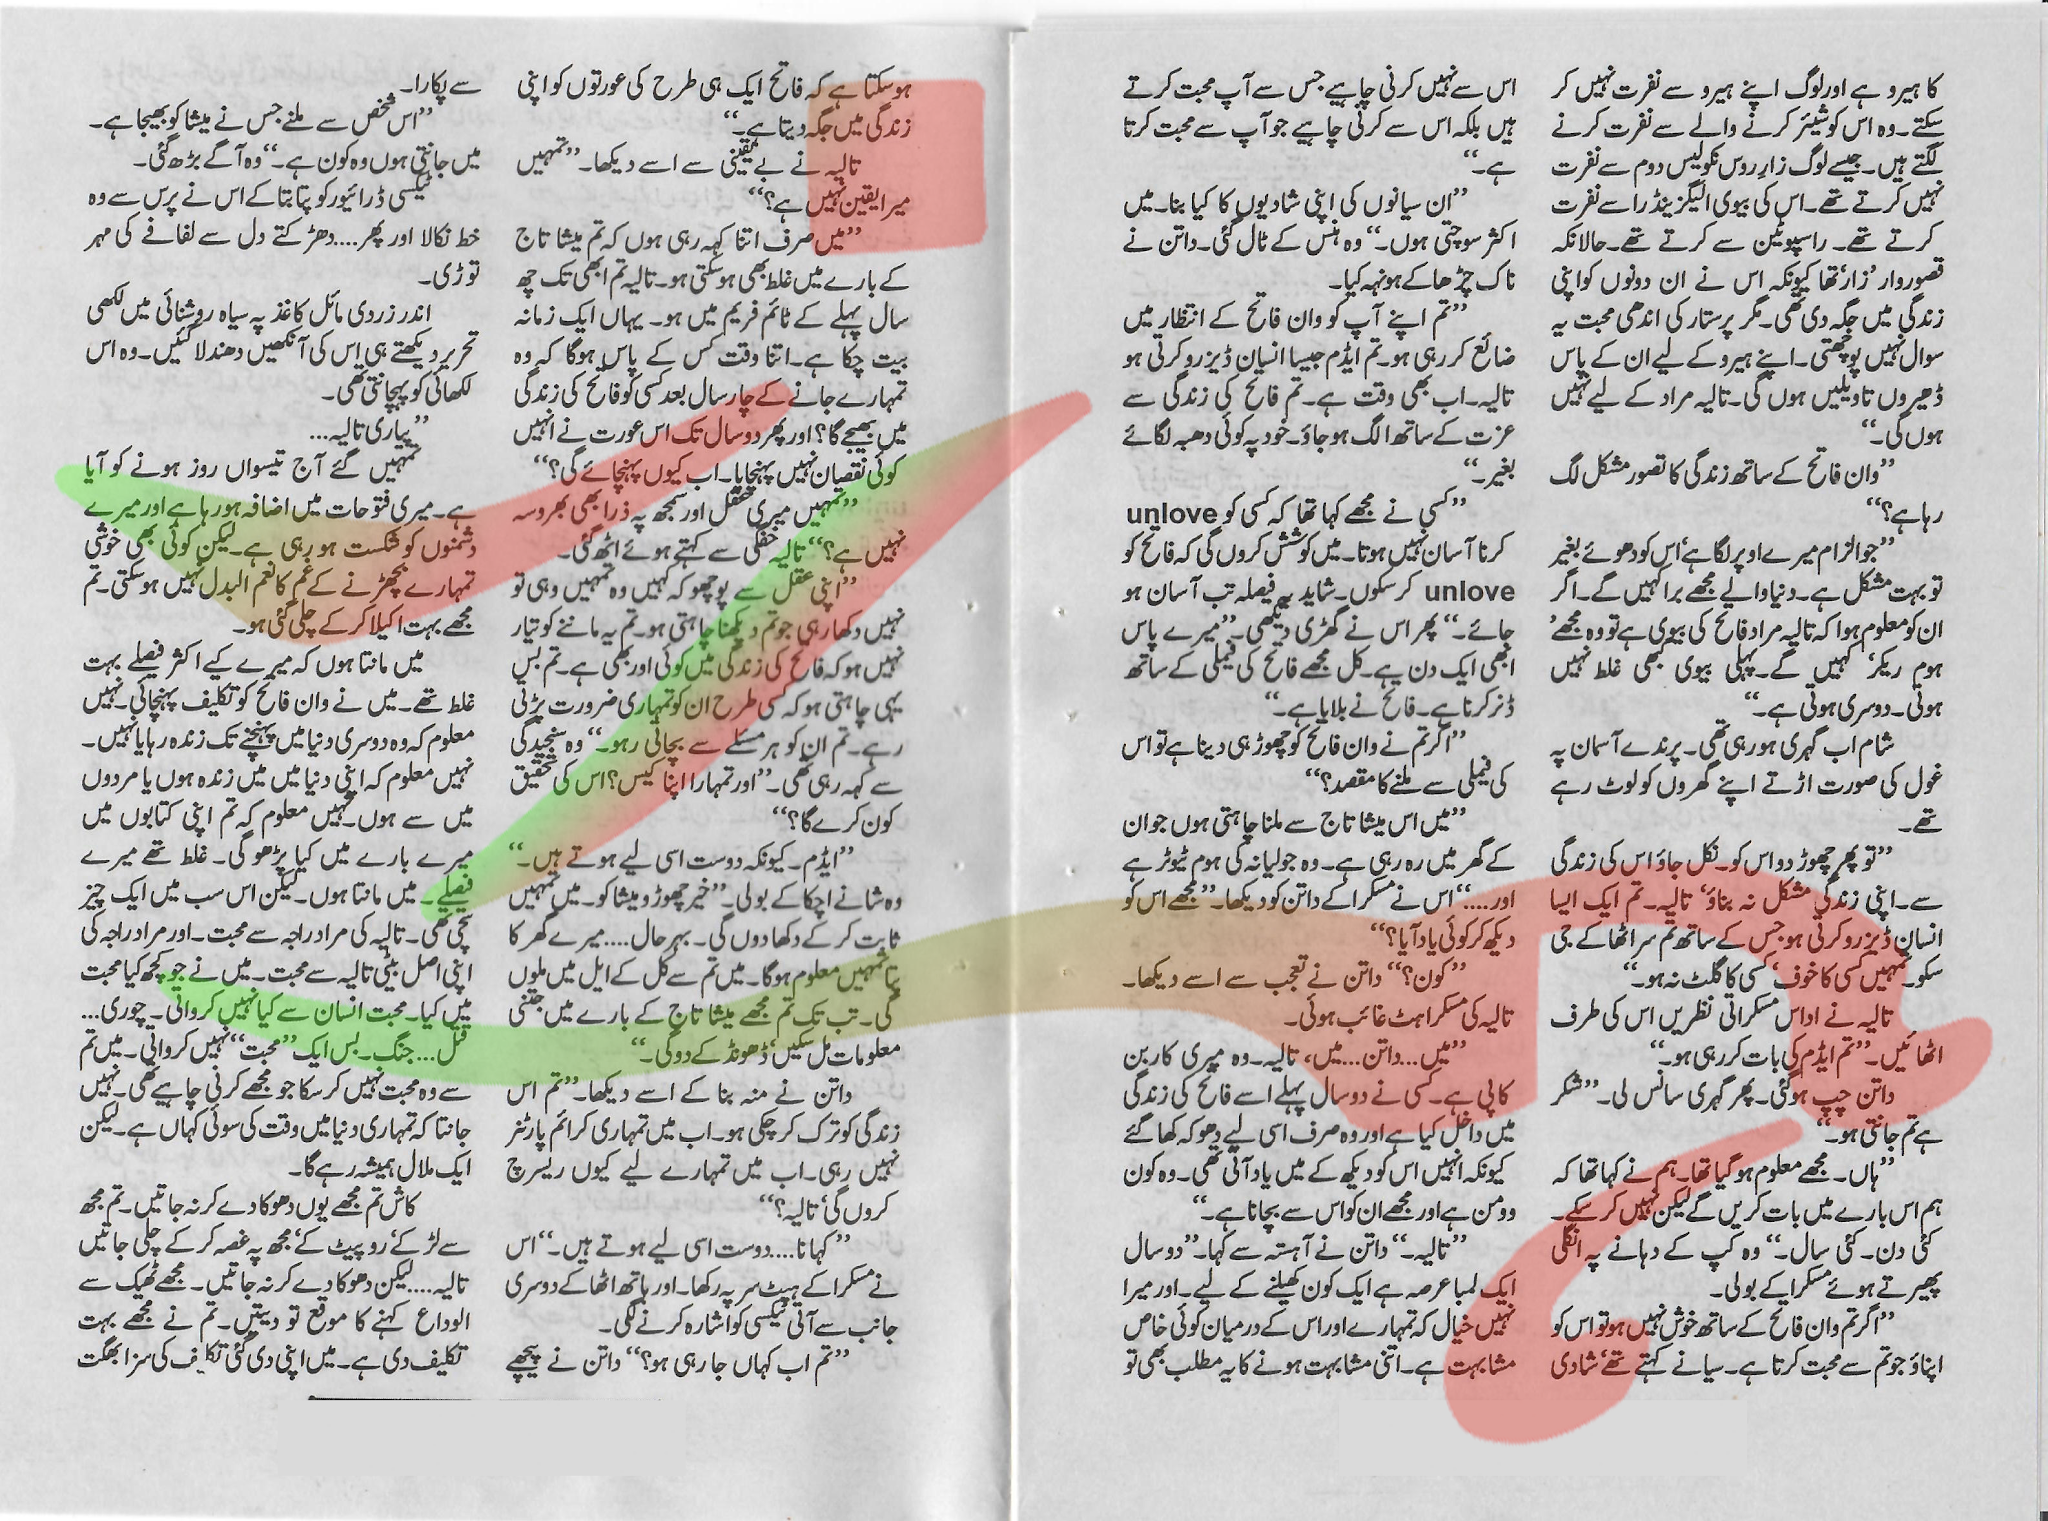 کا ہیرو ہے اور لوگ اپنے ہیرو سے نفرت نہیں کر
سکتے۔ وہ اس کو شیئر کرنے والے سے نفرت کرنے
لگتے ہیں۔ جیسے لوگ زارِ روس نکولیس دوم سے نفرت
نہیں کرتے تھے۔ اس کی بیوی الیگزینڈرا سے نفرت
کرتے تھے۔ راسپوٹین سے کرتے تھے۔ حالانکہ
قصوروار ’زار‘ تھا کیونکہ اس نے ان دونوں کو اپنی
زندگی میں جگہ دی تھی۔ مگر پرستار کی اندھی محبت یہ
سوال نہیں پوچھتی۔ اپنے ہیرو کے لیے ان کے پاس
ڈھیروں تاویلیں ہوں گی۔ تالیہ مراد کے لیے نہیں
ہوں گی۔‘‘
’’وان فاتح کے ساتھ زندگی کا تصور مشکل لگ
رہا ہے؟‘‘
’’جو الزام میرے اوپر لگا ہے‘ اس کو دھوئے بغیر
تو بہت مشکل ہے۔ دنیا والے مجھے برا کہیں گے۔ اگر
ان کو معلوم ہوا کہ تالیہ مراد فاتح کی بیوی ہے تو وہ مجھے ’
ہوم ریکر‘ کہیں گے۔ پہلی بیوی کبھی غلط نہیں
ہوتی۔ دوسری ہوتی ہے۔‘‘
شام اب گہری ہو رہی تھی۔ پرندے آسمان پہ
غول کی صورت اڑتے اپنے گھروں کو لوٹ رہے
تھے۔
’’تو پھر چھوڑ دو اس کو۔ نکل جاؤ اس کی زندگی
سے۔ اپنی زندگی مشکل نہ بناؤ‘ تالیہ۔ تم ایک ایسا
انسان ڈیزرو کرتی ہو جس کے ساتھ تم سر اٹھا کے جی
سکو۔ تمہیں کسی کا خوف‘ کسی کا گلٹ نہ ہو۔‘‘
تالیہ نے اداس مسکراتی نظریں اس کی طرف
اٹھائیں۔ ’’تم ایڈم کی بات کر رہی ہو۔‘‘
داتن چپ ہو گئی۔ پھر گہری سانس لی۔ ’’شکر
ہے تم جانتی ہو۔‘‘
’’ہاں۔ مجھے معلوم ہو گیا تھا۔ ہم نے کہا تھا کہ
ہم اس بارے میں بات کریں گے لیکن نہیں کر سکے۔
کئی دن۔ کئی سال۔‘‘ وہ کپ کے دہانے پہ انگلی
پھیرتے ہوئے مسکرا کے بولی۔
’’اگر تم وان فاتح کے ساتھ خوش نہیں ہو تو اس کو
اپناؤ جو تم سے محبت کرتا ہے۔ سیانے کہتے تھے‘ شادی
اس سے نہیں کرنی چاہیے جس سے آپ محبت کرتے
ہیں بلکہ اس سے کرنی چاہیے جو آپ سے محبت کرتا
ہے۔‘‘
’’ان سیانوں کی اپنی شادیوں کا کیا بنا۔ میں
اکثر سوچتی ہوں۔‘‘ وہ ہنس کے ٹال گئی۔ داتن نے
ناک چڑھا کے ہونہہ کیا۔
’’تم اپنے آپ کو وان فاتح کے انتظار میں
ضائع کر رہی ہو۔ تم ایڈم جیسا انسان ڈیزرو کرتی ہو
تالیہ۔ اب بھی وقت ہے۔ تم فاتح کی زندگی سے
عزت کے ساتھ الگ ہو جاؤ۔ خود پہ کوئی دھبہ لگائے
بغیر۔‘‘
’’کسی نے مجھے کہا تھا کہ کسی کو unlove
کرنا آسان نہیں ہوتا۔ میں کوشش کروں گی کہ فاتح کو
unlove کر سکوں۔ شاید یہ فیصلہ تب آسان ہو
جائے۔‘‘ پھر اس نے گھڑی دیکھی۔ ’’میرے پاس
ابھی ایک دن ہے۔ کل مجھے فاتح کی فیملی کے ساتھ
ڈنر کرنا ہے۔ فاتح نے بلایا ہے۔‘‘
’’اگر تم نے وان فاتح کو چھوڑ ہی دینا ہے تو اس
کی فیملی سے ملنے کا مقصد؟‘‘
’’میں اس میشا تاج سے ملنا چاہتی ہوں جو ان
کے گھر میں رہ رہی ہے۔ وہ جولیانہ کی ہوم ٹیوٹر ہے
اور....‘‘ اس نے مسکرا کے داتن کو دیکھا۔ ’’مجھے اس کو
دیکھ کر کوئی یاد آیا؟‘‘
’’کون؟‘‘ داتن نے تعجب سے اسے دیکھا۔
تالیہ کی مسکراہٹ غائب ہوئی۔
’’میں... داتن... میں‘ تالیہ۔ وہ میری کاربن
کاپی ہے۔ کسی نے دو سال پہلے اسے فاتح کی زندگی
میں داخل کیا ہے اور وہ صرف اسی لیے دھوکہ کھا گئے
کیونکہ انہیں اس کو دیکھ کے میں یاد آتی تھی۔ وہ کون
وومن ہے اور مجھے ان کو اس سے بچانا ہے۔‘‘
’’تالیہ۔‘‘ داتن نے آہستہ سے کہا۔ ’’دو سال
ایک لمبا عرصہ ہے ایک کون کھیلنے کے لیے۔ اور میرا
نہیں خیال کہ تمہارے اور اس کے درمیان کوئی خاص
مشابہت ہے۔ اتنی مشابہت ہونے کا یہ مطلب بھی تو
ہو سکتا ہے کہ فاتح ایک ہی طرح کی عورتوں کو اپنی
زندگی میں جگہ دیتا ہے۔‘‘
تالیہ نے بے یقینی سے اسے دیکھا۔ ’’تمہیں
میرا یقین نہیں ہے؟‘‘
’’میں صرف اتنا کہہ رہی ہوں کہ تم میشا تاج
کے بارے میں غلط بھی ہو سکتی ہو۔ تالیہ تم ابھی تک چھ
سال پہلے کے ٹائم فریم میں ہو۔ یہاں ایک زمانہ
بیت چکا ہے۔ اتنا وقت کس کے پاس ہوگا کہ وہ
تمہارے جانے کے چار سال بعد کسی کو فاتح کی زندگی
میں بھیجے گا؟ اور پھر دو سال تک اس عورت نے انہیں
کوئی نقصان نہیں پہنچایا۔ اب کیوں پہنچائے گی؟‘‘
’’تمہیں میری عقل اور سمجھ پہ ذرا بھی بھروسہ
نہیں ہے؟‘‘ تالیہ خفگی سے کہتے ہوئے اٹھ گئی۔
’’اپنی عقل سے پوچھو کہ کہیں وہ تمہیں وہی تو
نہیں دکھا رہی جو تم دیکھنا چاہتی ہو۔ تم یہ ماننے کو تیار
نہیں ہو کہ فاتح کی زندگی میں کوئی اور بھی ہے۔ تم بس
یہی چاہتی ہو کہ کسی طرح ان کو تمہاری ضرورت پڑتی
رہے۔ تم ان کو ہر مسئلے سے بچاتی رہو۔‘‘ وہ سنجیدگی
سے کہہ رہی تھی۔ ’’اور تمہارا اپنا کیس؟ اس کی تحقیق
کون کرے گا؟‘‘
’’ایڈم۔ کیونکہ دوست اسی لیے ہوتے ہیں۔‘‘
وہ شانے اچکا کے بولی۔ ’’خیر چھوڑو میشا کو۔ میں تمہیں
ثابت کر کے دکھا دوں گی۔ بہرحال.... میرے گھر کا
پتا تمہیں معلوم ہوگا۔ میں تم سے کل کے ایل میں ملوں
گی۔ تب تک تم مجھے میشا تاج کے بارے میں جتنی
معلومات مل سکیں‘ ڈھونڈ کے دو گی۔‘‘
داتن نے منہ بنا کے اسے دیکھا۔ ’’تم اس
زندگی کو ترک کر چکی ہو۔ اب میں تمہاری کرائم پارٹنر
نہیں رہی۔ اب میں تمہارے لیے کیوں ریسرچ
کروں گی‘ تالیہ؟‘‘
’’کہا نا.... دوست اسی لیے ہوتے ہیں۔‘‘ اس
نے مسکرا کے ہیٹ سر پہ رکھا۔ اور ہاتھ اٹھا کے دوسری
جانب سے آتی ٹیکسی کو اشارہ کرنے لگی۔
’’تم اب کہاں جا رہی ہو؟‘‘ داتن نے پیچھے
سے پکارا۔
’’اس شخص سے ملنے جس نے میشا کو بھیجا ہے۔
میں جانتی ہوں وہ کون ہے۔‘‘ وہ آگے بڑھ گئی۔
ٹیکسی ڈرائیور کو پتا بتا کے اس نے پرس سے وہ
خط نکالا اور پھر.... دھڑکتے دل سے لفافے کی مہر
توڑی۔
اندر زردی مائل کاغذ پہ سیاہ روشنائی میں لکھی
تحریر دیکھتے ہی اس کی آنکھیں دھندلا گئیں۔ وہ اس
لکھائی کو پہچانتی تھی۔
’’پیاری تالیہ...
تمہیں گئے آج تیسواں روز ہونے کو آیا
ہے۔ میری فتوحات میں اضافہ ہو رہا ہے اور میرے
دشمنوں کو شکست ہو رہی ہے۔ لیکن کوئی بھی خوشی
تمہارے بچھڑنے کے غم کا نعم البدل نہیں ہو سکتی۔ تم
مجھے بہت اکیلا کر کے چلی گئی ہو۔
میں مانتا ہوں کہ میرے کیے اکثر فیصلے بہت
غلط تھے۔ میں نے وان فاتح کو تکلیف پہنچائی۔ نہیں
معلوم کہ وہ دوسری دنیا میں پہنچنے تک زندہ رہا یا نہیں۔
نہیں معلوم کہ اپنی دنیا میں میں زندہ ہوں یا مردوں
میں سے ہوں۔ نہیں معلوم کہ تم اپنی کتابوں میں
میرے بارے میں کیا پڑھو گی۔ غلط تھے میرے
فیصلے۔ میں مانتا ہوں۔ لیکن اس سب میں ایک چیز
سچی تھی۔ تالیہ کی مراد راجہ سے محبت۔ اور مراد راجہ کی
اپنی اصل بیٹی تالیہ سے محبت۔ میں نے جو کچھ کیا محبت
میں کیا۔ محبت انسان سے کیا نہیں کرواتی۔ چوری...
قتل... جنگ۔ بس ایک ’’محبت‘‘ نہیں کرواتی۔ میں تم
سے وہ محبت نہیں کر سکا جو مجھے کرنی چاہیے تھی۔ نہیں
جانتا کہ تمہاری دنیا میں وقت کی سوئی کہاں ہے۔ لیکن
ایک ملال ہمیشہ رہے گا۔
کاش تم مجھے یوں دھوکا دے کر نہ جاتیں۔ تم مجھ
سے لڑ کے‘ رو پیٹ کے‘ مجھ پہ غصہ کر کے چلی جاتیں
تالیہ.... لیکن دھوکا دے کر نہ جاتیں۔ مجھے ٹھیک سے
الوداع کہنے کا موقع تو دیتیں۔ تم نے مجھے بہت
تکلیف دی ہے۔ میں اپنی دی گئی تکالیف کی سزا بھگت